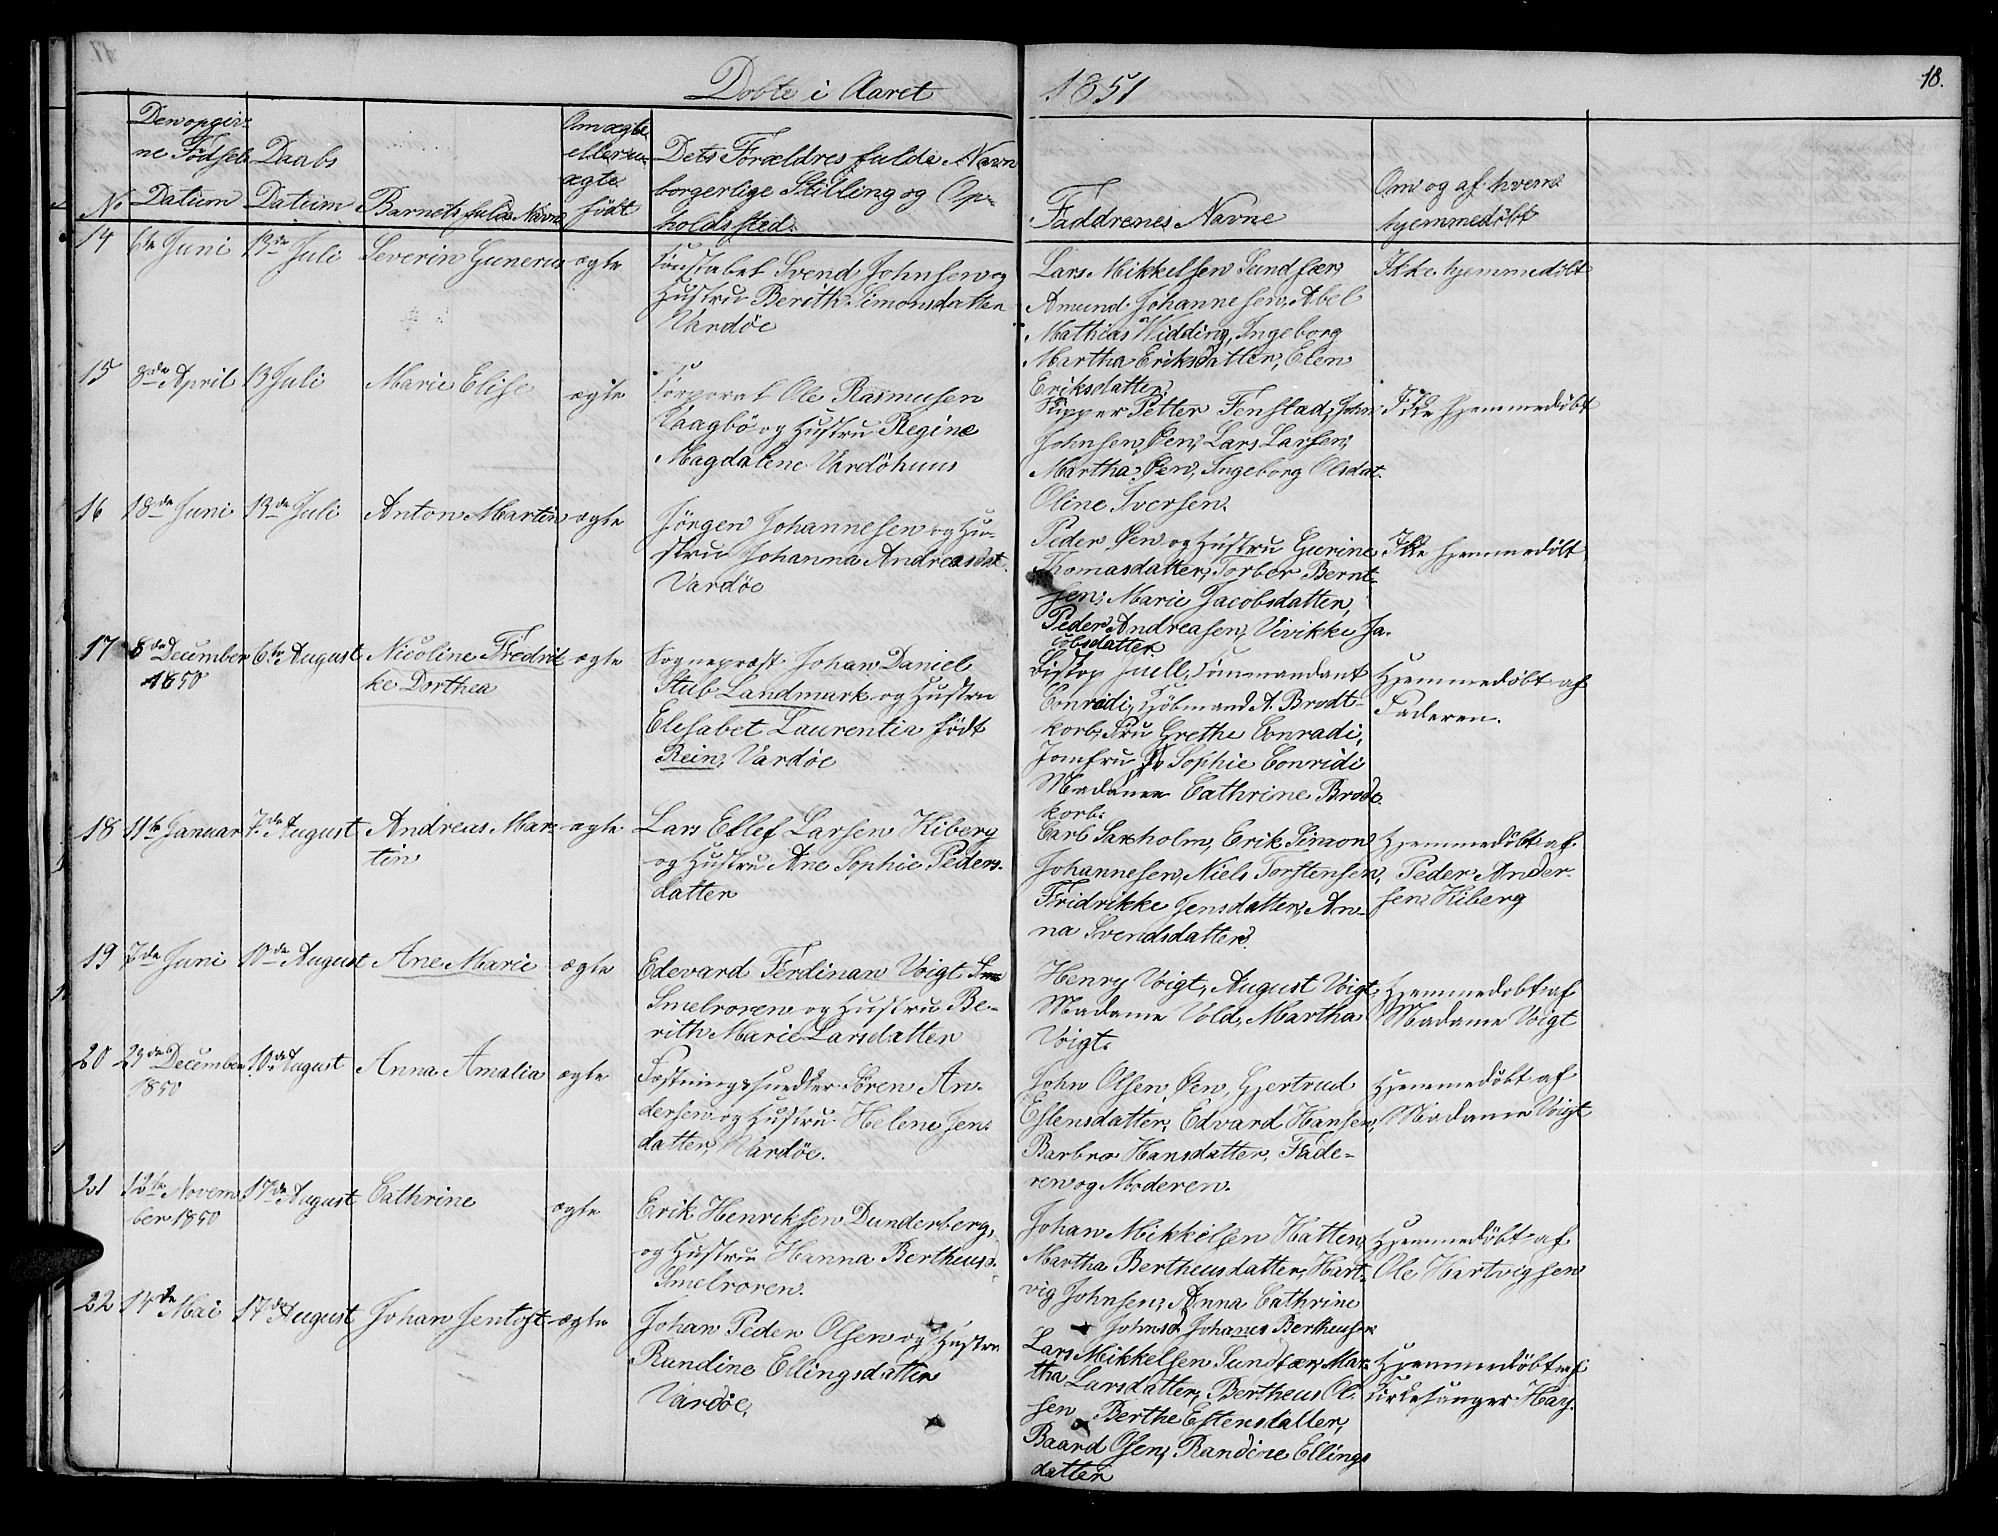 Döbte i Aaret 1851
18.
No
Den opgiv-
ne Födsels
Datum
Daabs
Datum
Barnets fulde Navn
Om ægte
eller u-
ægte
födt
Dets Forældres fulde Navn
borgerlige Stilling og Op-
holdssted.
Faddrenes Navne
Om og af hvem
hjemmedöbt
14 6te Juni 13de Juli Severin Gunerus ægte
Constabel Svend Johnsen og
Hustru Berith Simonsdatter
Vardöe
Lars Mikkelsen Sundfær,
Amund Johannesen, Abel
Mathias Widding, Ingeborg
Martha Eriksdatter, Elen
Eriksdatter
Ikke hjemmedöbt
15 8de April 13 Juli Marie Elise ægte
Corporal Ole Rasmusen
Vaagbö og Hustru Regine
Magdalene Vardöhuus
Petter Fenstad, John
Johnsen Öen, Lars Larsen,
Martha Öen, Ingeborg Olsdat.
Oline Iversen.
Ikke hjemmedöbt
16 18de Juni 13de Juli Anton Martin ægte
Jörgen Johannesen og Hu-
stru Johanna Andreasdat.
Vardöe
Peder Öen og Hustru Gurine
Thomasdatter, Torber Bernt-
sen, Marie Jacobsdatter,
Peder Andreasen, Vivikke Ja-
cobsdatter
Ikke hjemmedöbt
17 8de December 6te August Nicoline Fredrik
1850
ke Dorthea
ægte
Sognepræst Johan Daniel
Stub Landmark og Hustru
Elisabet Laurentia födt
Rein, Vardöe
Biskop Juell, Commandant
Conradi, Kjöbmand A. Brodt-
korb, Fru Grethe Conradi,
Jomfru Sophie Conridi
Madame Cathrine Brodt
korb.
Hjemmedöbt af
Faderen.
18 11te Januar 7de August Andreas Mar-
tin
ægte
Lars Ellef Larsen Kiberg
og Hustru Ane Sophie Peders-
datter
Carl Saxholm, Erik Simon
Johannesen, Niels Torstensen,
Fridrikke Jensdatter, An-
na Svendsdatter.
Hjemmedöbt af
Peder Ander-
sen Kiberg
19 7de Juni 10de August Ane Marie ægte
Edevard Ferdinan Voigt
Smelroren og Hustru Be-
rith Marie Larsdatter
Henry Voigt, August Voigt
Madame Vold, Martha
Voigt.
Hjemmedöbt af
Madame Voigt
20 29de December 10de August Anna Amalia ægte
1850
Sören An-
dersen og Hustru Helene Jens
datter, Vardöe.
John Olsen Öen, Gjertrud
Estensdatter, Edvard Hansen,
Barbro Hansdatter, Fade-
ren og Moderen.
Hjemmedöbt af
Madame Voigt
21 12te Novem 17de August Cathrine ægte
ber 1850
Erik Henriksen Dunderberg,
og Hustru Hanna Bertheusd.
Smelroren.
Johan Mikkelsen Hatten,
Martha Bertheusdatter, Hart-
vig Johnsen, Anna Cathrine
Johnsd Johanes Bertheusen
Hjemmedöbt af
Ole Hartvigsen
22 14de Mai 17de August Johan Jentoft ægte
Johan Peder Olsen og Hustru
Randine Ellingsdatter
Vardöe.
Lars Mikkelsen Sundfær, Mar-
tha Larsdatter, Bertheus Ol-
sen Berthe Estensdatter,
Baard Olsen, Randine Ellings
datter
Hjemmedöbt af
Kirkesanger Hay.